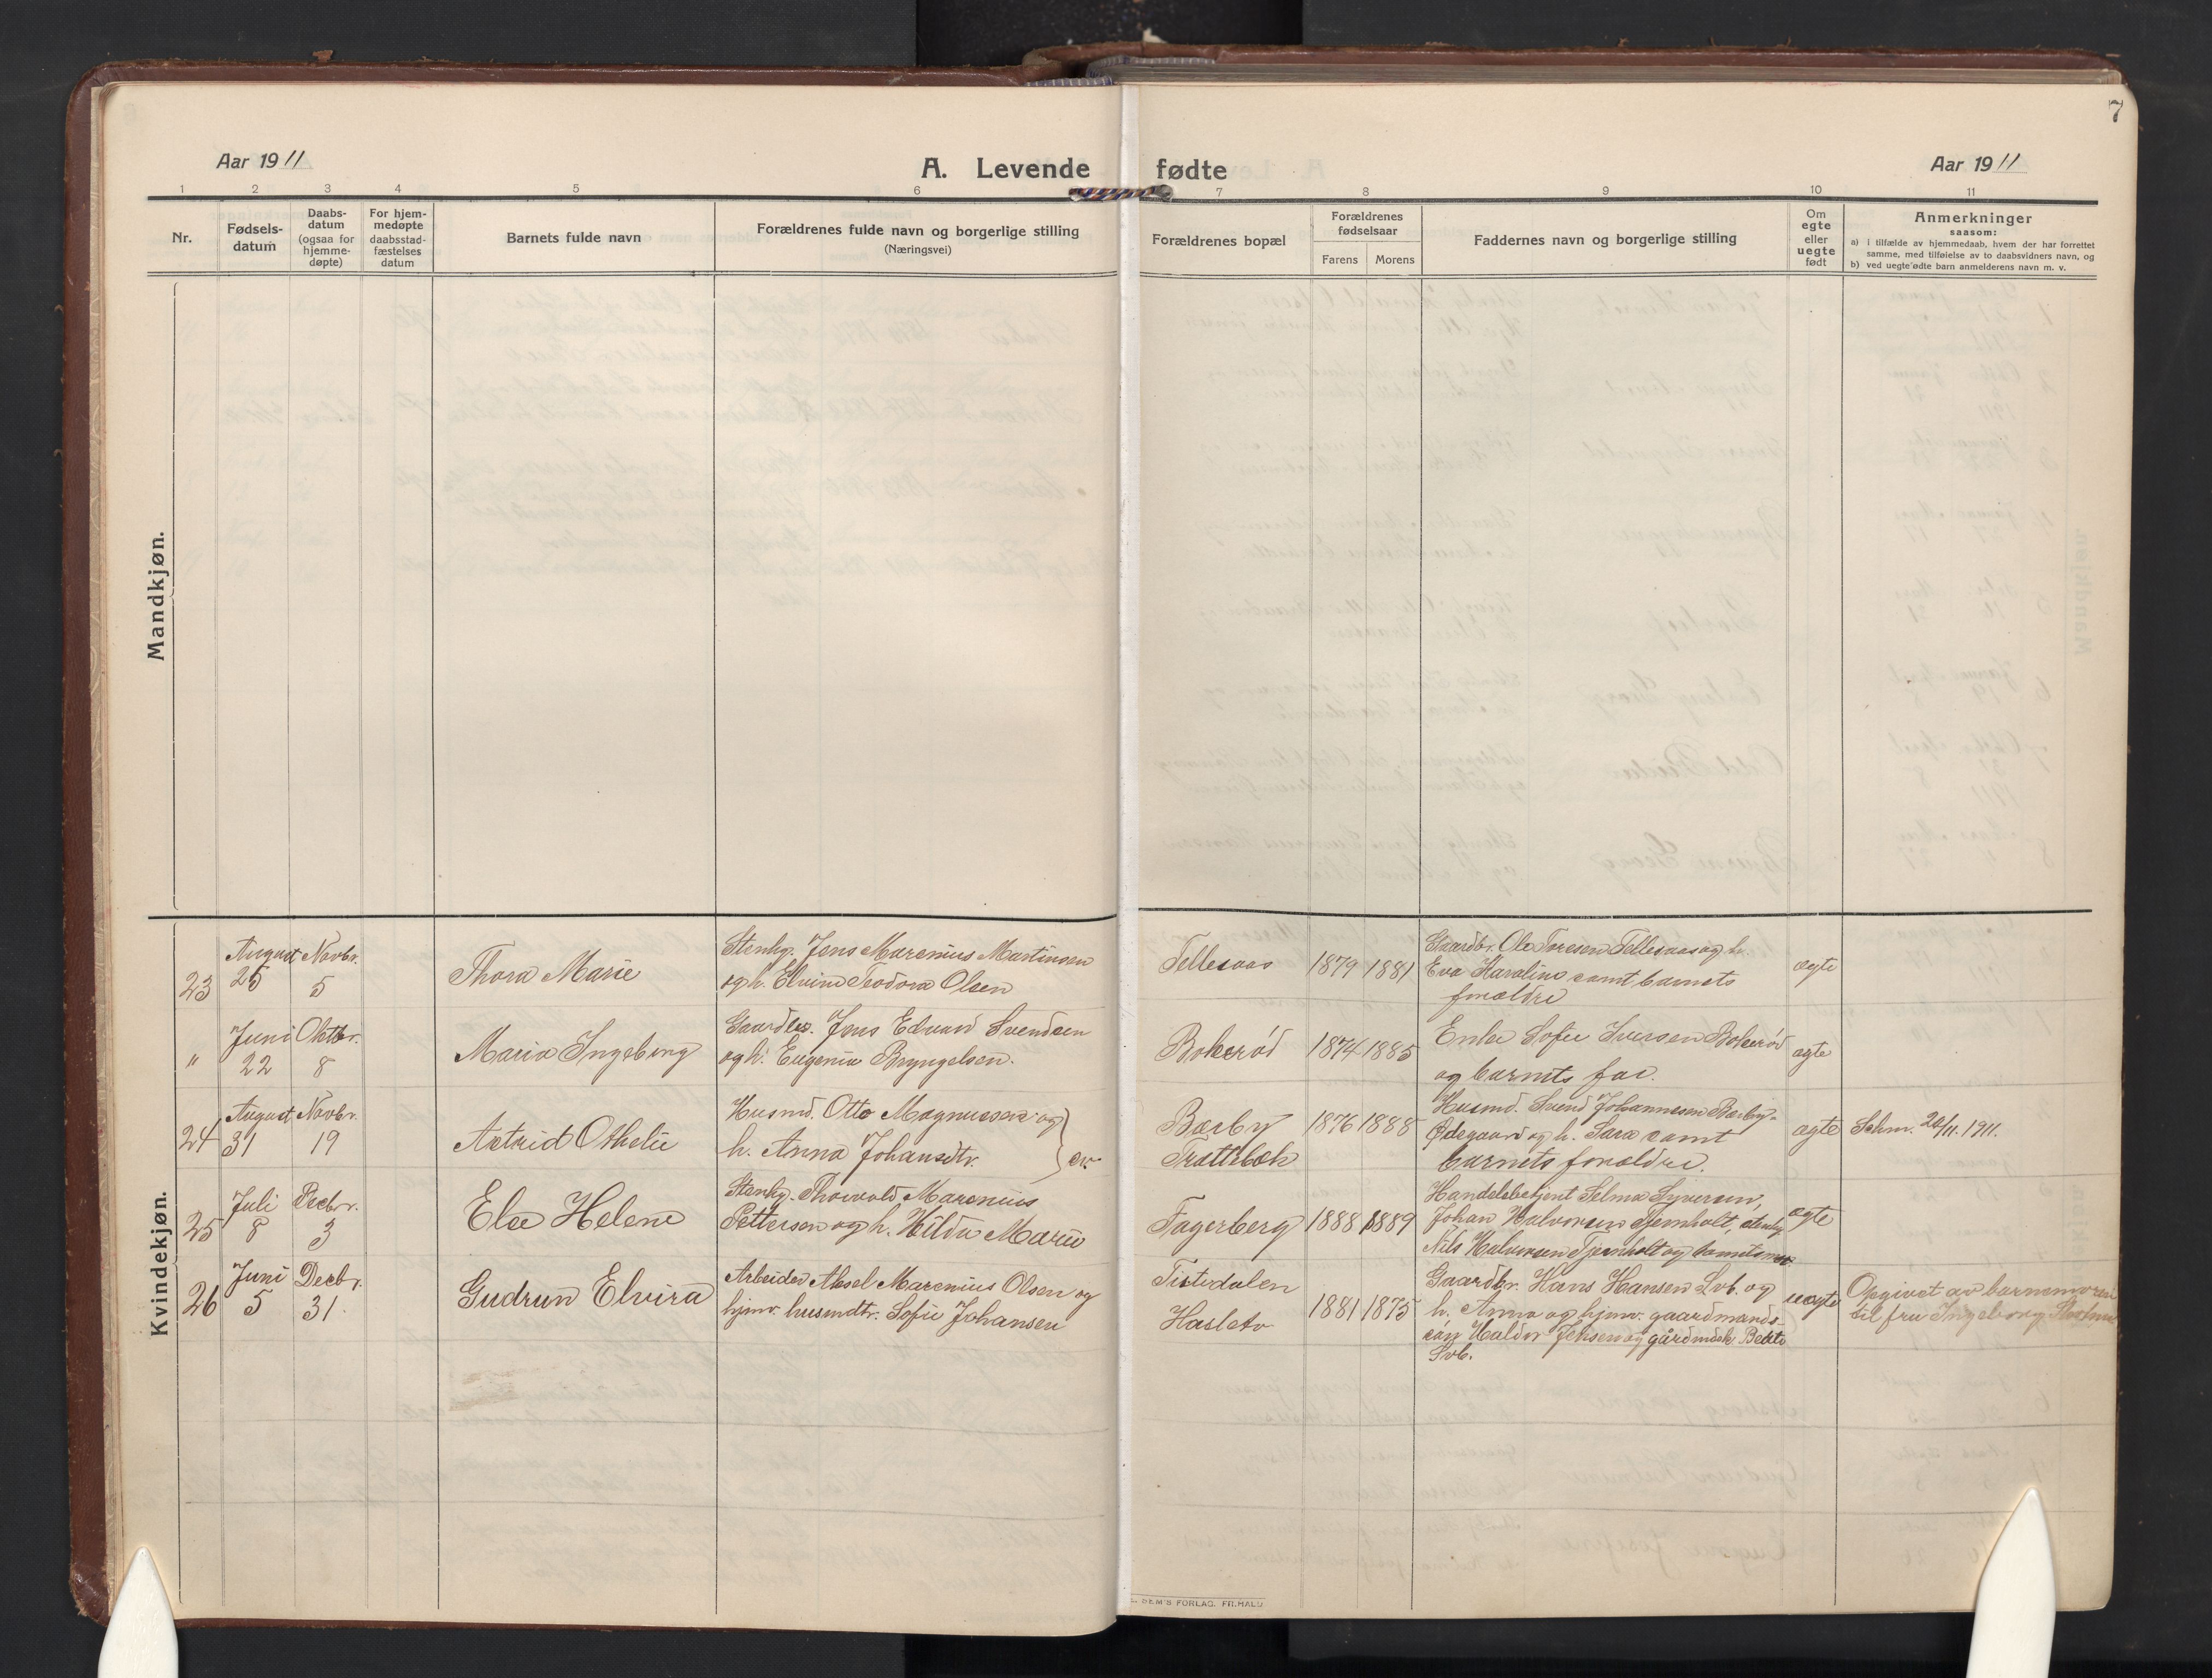 7
Aar 1911
A. Levende fødte
Aar 1911
1 2 3 4 5 6 7 8 9 10 11
Nr.
Fødsels-
datum
Daabs-
datum
(ogsaa for
hjemme-
døpte)
For hjem-
medøpte
daabsstad-
fæstelses
datum
Barnets fulde navn
Forældrenes fulde navn og borgerlige stilling
(Næringsvei)
Forældrenes bopæl
Forældrenes
fødselsaar
Farens Morens
Faddernes navn og borgerlige stilling
Om
egte
eller
uegte
født
Anmerkninger
saasom:
a) i tilfælde av hjemmedaab, hvem der har forrettet
samme, med tilføielse av to daabsvidners navn, og
b) ved uegte fødte barn anmelderens navn m. v.
Mandkjøn.
Kvindekjøn.
23
August
25
Novbr.
5
Thora Marie
Stenhg. Jens Marenius Martinsen
og h. Elvine Teodora Olsen
Tellesaas
1879 1881
Gaardbr. Ole Toresen Tellesaas og h.
Eva Karoline samt barnets
forældre
ægte
"
Juni
22
Oktbr.
8
Maria Ingeborg
Gaardbr. Jens Edvard Svendsen
og h. Eugenia Bryngelsen.
Bokerød
1874 1885
Enke Sofie Iversen Bokerød
og barnets far.
ægte
24
August
31
Novbr.
19
Astrid Othelie
Husmd. Otto Magnussen og
h. Anna Johansdtr.
Bærby
Trættebæk
1876 1888
Husmd. Svend Johannesen Bærby-
Ødegaard og h. Sara samt
barnets forældre.
ægte
20/11. 1911.
25
Juli
8
Decbr.
3
Else Helene
Stenhg. Thorvald Marenius
Pettersen og h. Hilda Marie
Fagerberg
1888 1889
Handelsbetjent Selma Syversen,
Johan Halvorsen Tjernholt, stenhg
Nils Halvorsen Tjernholt og barnets mor
ægte
26
Juni
5
Decbr.
31.
Gudrun Elvira
Arbeider Aksel Marenius Olsen og
hjmv. husmdtr. Sofie Johansen
Tistedalen
Hasleto
1881 1875
Gaardbr. Hans Hansen Lvb. og
h. Anna og hjmv. gaardmands-
søn Haldor Jensen og
Svb.
uegte
Opgivet av barnemoren
til fru Ingeborg
FORLAG. FR.HALD